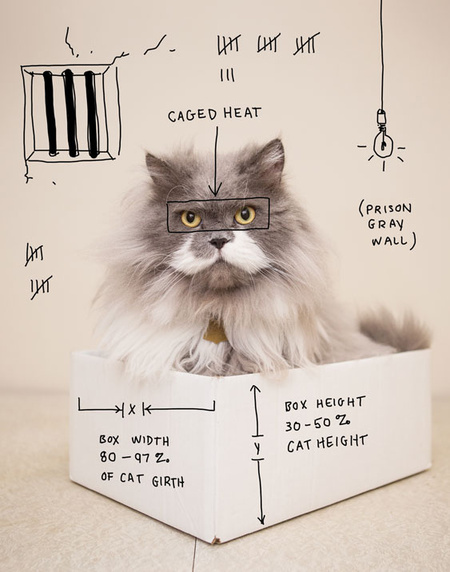 CAGED HEAT
(PRISON
GRAY
WALL)
X
BOX WIDTH
80-97%
OF CAT GIRTH
Y
BOX HEIGHT
30-50%
CAT HEIGHT